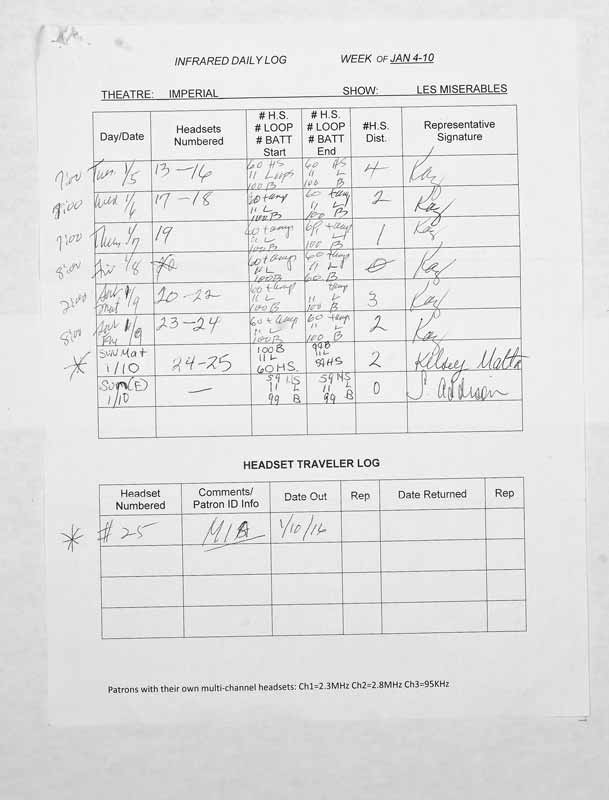 INFRARED DAILY LOG WEEK OF JAN 4-10
THEATRE: IMPERIAL SHOW: LES MISERABLES
Day/Date Headsets Numbered # H.S. # LOOP # BATT Start # H.S. # LOOP # BATT End #H.S. Dist. Representative Signature
7:00 Tues 1/5 13-16 60 HS 11 Loops 100 B 60 HS 11 L 100 B 4 Kay
8:00 Wed 1/6 17-18 60 + amp 11 L 100 B 60 + amp 11 L 100 B 2 Kay
7:00 Thu 1/7 19 60 + amp 11 L 100 B 60 + amp 11 L 100 B 1 Kay
8:00 Fri 1/8 60 + amp 11 L 100 B 60 + amp 11 L 0 Kay
2:00 Sat Mat 1/9 20-22 60 + amp 11 L 100 B amp 11 L 100 B 3 Kay
8:00 Sat 1/9 23-24 60 + amp 11 L 100 B 60 + amp 11 L 100 B 2 Kay
* Sun Mat 1/10 24-25 100 B 11 L 60 HS. 99 B 11 L 59 HS 2 Kelsey
Sun (E) 1/10 — 59 HS 11 L 99 B 59 HS 11 L 99 B 0 J. Addison
HEADSET TRAVELER LOG
Headset Numbered Comments/ Patron ID Info Date Out Rep Date Returned Rep
* # 25 MIA 1/10/16
Patrons with their own multi-channel headsets: Ch1=2.3MHz Ch2=2.8MHz Ch3=95KHz